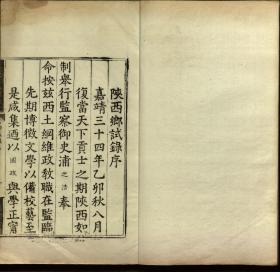 陝西鄉試錄序
嘉靖三十四年乙卯秋八月
復當天下貢士之期陝西如
制舉行監察御史浦之浩奉
命按茲西土綱維政教職在監臨
先期博徵文學以備校藝至
是咸集迺以國政與學正甯